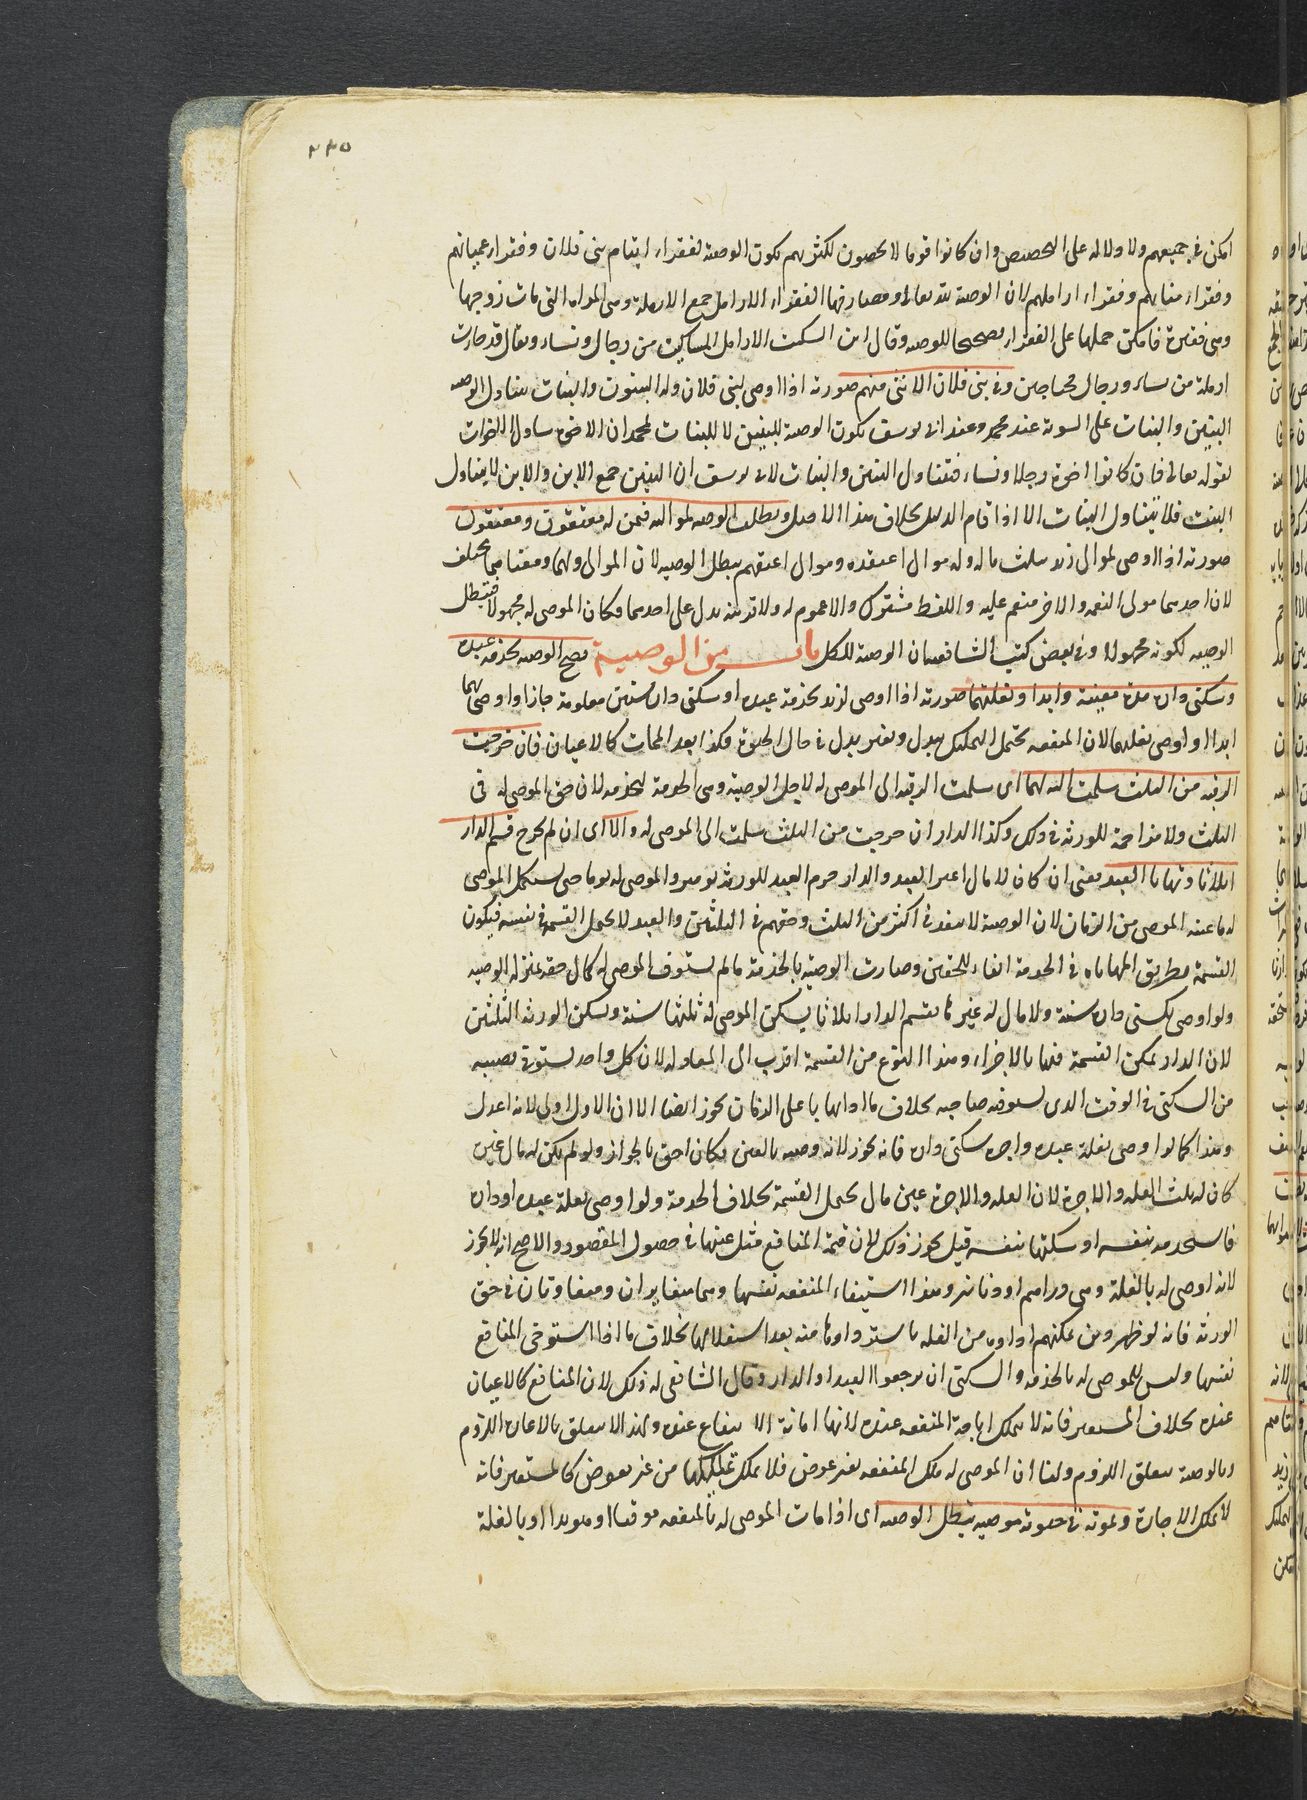 ٢٣٥
امكن في جميعهم ولا دلالة على التخصيص وان كانوا قوما لا يحصون لكثرتهم تكون الوصية لفقراء ايتام بني فلان وفقراء عميانهم
وفقراء زمناهم وفقراء اراملهم لان الوصية لله تعالى ومصارفها الفقراء الارامل جمع الارملة وهي المراة التي مات زوجها
وهي فقيرة فامكن حملها على الفقراء تصحيحا للوصية وقال ابن السكيت الارامل المساكين من رجال ونساء ويقال قد جاءت
ارملة من نساء ورجال محتاجين وفي بني فلان الانثى منهم صورته اذا اوصى لبني فلان وله البنون والبنات يتناول الوصية
البنين والبنات على السوية عند محمد وعند ابي يوسف تكون الوصية للبنين لا للبنات لمحمد ان الاخوة يتناول الاخوات
لقوله تعالى فان كانوا اخوة رجالا ونساء فتتناول البنين والبنات لابي يوسف ان البنين جمع الابن والابن لا يتناول
البنت فلا يتناول البنات الا اذا قام الدليل بخلاف هذا الاصل وبطلت الوصية لمواليه فيمن له معتقون ومعتقون
صورته اذا اوصى لموالي زيد بثلث ماله وله موال اعتقوه وموال اعتقهم يبطل الوصية لان الموالي ولهما ومعناهما مختلف
لان احدهما مولى النعمة والاخر منعم عليه واللفظ مشترك ولا عموم له ولا قرينة يدل على احدهما فكان الموصى له مجهولا فتبطل
الوصية لكونه مجهولا وفي بعض كتب الشافعي ان الوصية للكل باب من الوصية تصح الوصية بخدمة عبده
وسكنى داره مدة معينة وابدا وبغلتهما صورته اذا اوصى لزيد بخدمة عبده او سكنى داره سنين معلومة جاز او اوصى بهما
ابدا او اوصى بغلتهما لان المنفعة تحتمل التمليك ببدل وبغير بدل في حال الحيوة فكذا بعد الممات كالاعيان فان خرجت
الرقبة من الثلث سلمت اليه لهما اي سلمت الرقبة الى الموصى له لاجل الوصية وهي الخدمة ليخدمه لان حق الموصى له في
الثلث ولا مزاحمة للورثة في ذلك وكذا الدار ان خرجت من الثلث سلمت الى الموصى له والا اي ان لم يخرج قسم الدار
اثلاثا وتهايا العبد يعني ان كان لا مال له غير العبد والدار خدم العبد للورثة يومين والموصى له يوما حتى يستكمل الموصى
له ما عينه الموصي من الزمان لان الوصية لا تنفذ في اكثر من الثلث وحقهم في الثلثين والعبد لا يحتمل القسمة في نفسه فيكون
القسمة بطريق المهاياة في الخدمة ايفاء للحقين وصارت الوصية بالخدمة ما لم يستوف الموصى له كمال حقه بمنزلة الوصية
ولو اوصى بسكنى داره سنة ولا مال له غيرها تقسم الدار اثلاثا يسكن الموصى له ثلثها سنة ويسكن الورثة الثلثين
لان الدار يمكن القسمة فيها بالاجزاء وهذا النوع من القسمة اقرب الى المعادلة لان كل واحد يستوفي نصيبه
من السكنى في الوقت الذي يستوفيه صاحبه بخلاف ما اذا تهايا على الزمان يجوز ايضا الا ان الاول اولى لانه اعدل
وهذا كما لو اوصى بغلة عبده واجرة سكنى داره فانه يجوز لانه وصية بالعين فكان احق بالجواز ولو لم يكن له مال غيره
كان له ثلث الغلة والاجرة لان الغلة والاجرة عين مال يحتمل القسمة بخلاف الخدمة ولو اوصى بغلة عبده او داره
فاستخدمه بنفسه او سكنها بنفسه قيل يجوز ذلك لان قيمة المنافع مثل عينها في حصول المقصود والاصح انه لا يجوز
لانه اوصى له بالغلة وهي دراهم او دنانير وهذا استيفاء المنفعة نفسها وهما متغايران ومتفاوتان في حق
الورثة فانه لو ظهر دين يمكنهم اداؤه من الغلة باسترداد ما منه بعد استغلالها بخلاف ما اذا استوفى المنافع
نفسها وليس للموصى له بالخدمة والسكنى ان يوجر العبد او الدار وقال الشافعي له ذلك لان المنافع كالاعيان
عنده بخلاف المستعير فانه لا يملك اباحة المنفعة عنده لانها امانة الانتفاع عنده ولهذا لا يتعلق بالاعارة اللزوم
وبالوصية يتعلق اللزوم ولنا ان الموصى له ملك المنفعة بغير عوض فلا يملك تمليكها من غير بعوض كالمستعير فانه
لا يملك الاجارة وبموته في حيوة موصيه تبطل الوصية اي اذا مات الموصى له بالمنفعة موقتا او مؤبدا او بالغلة